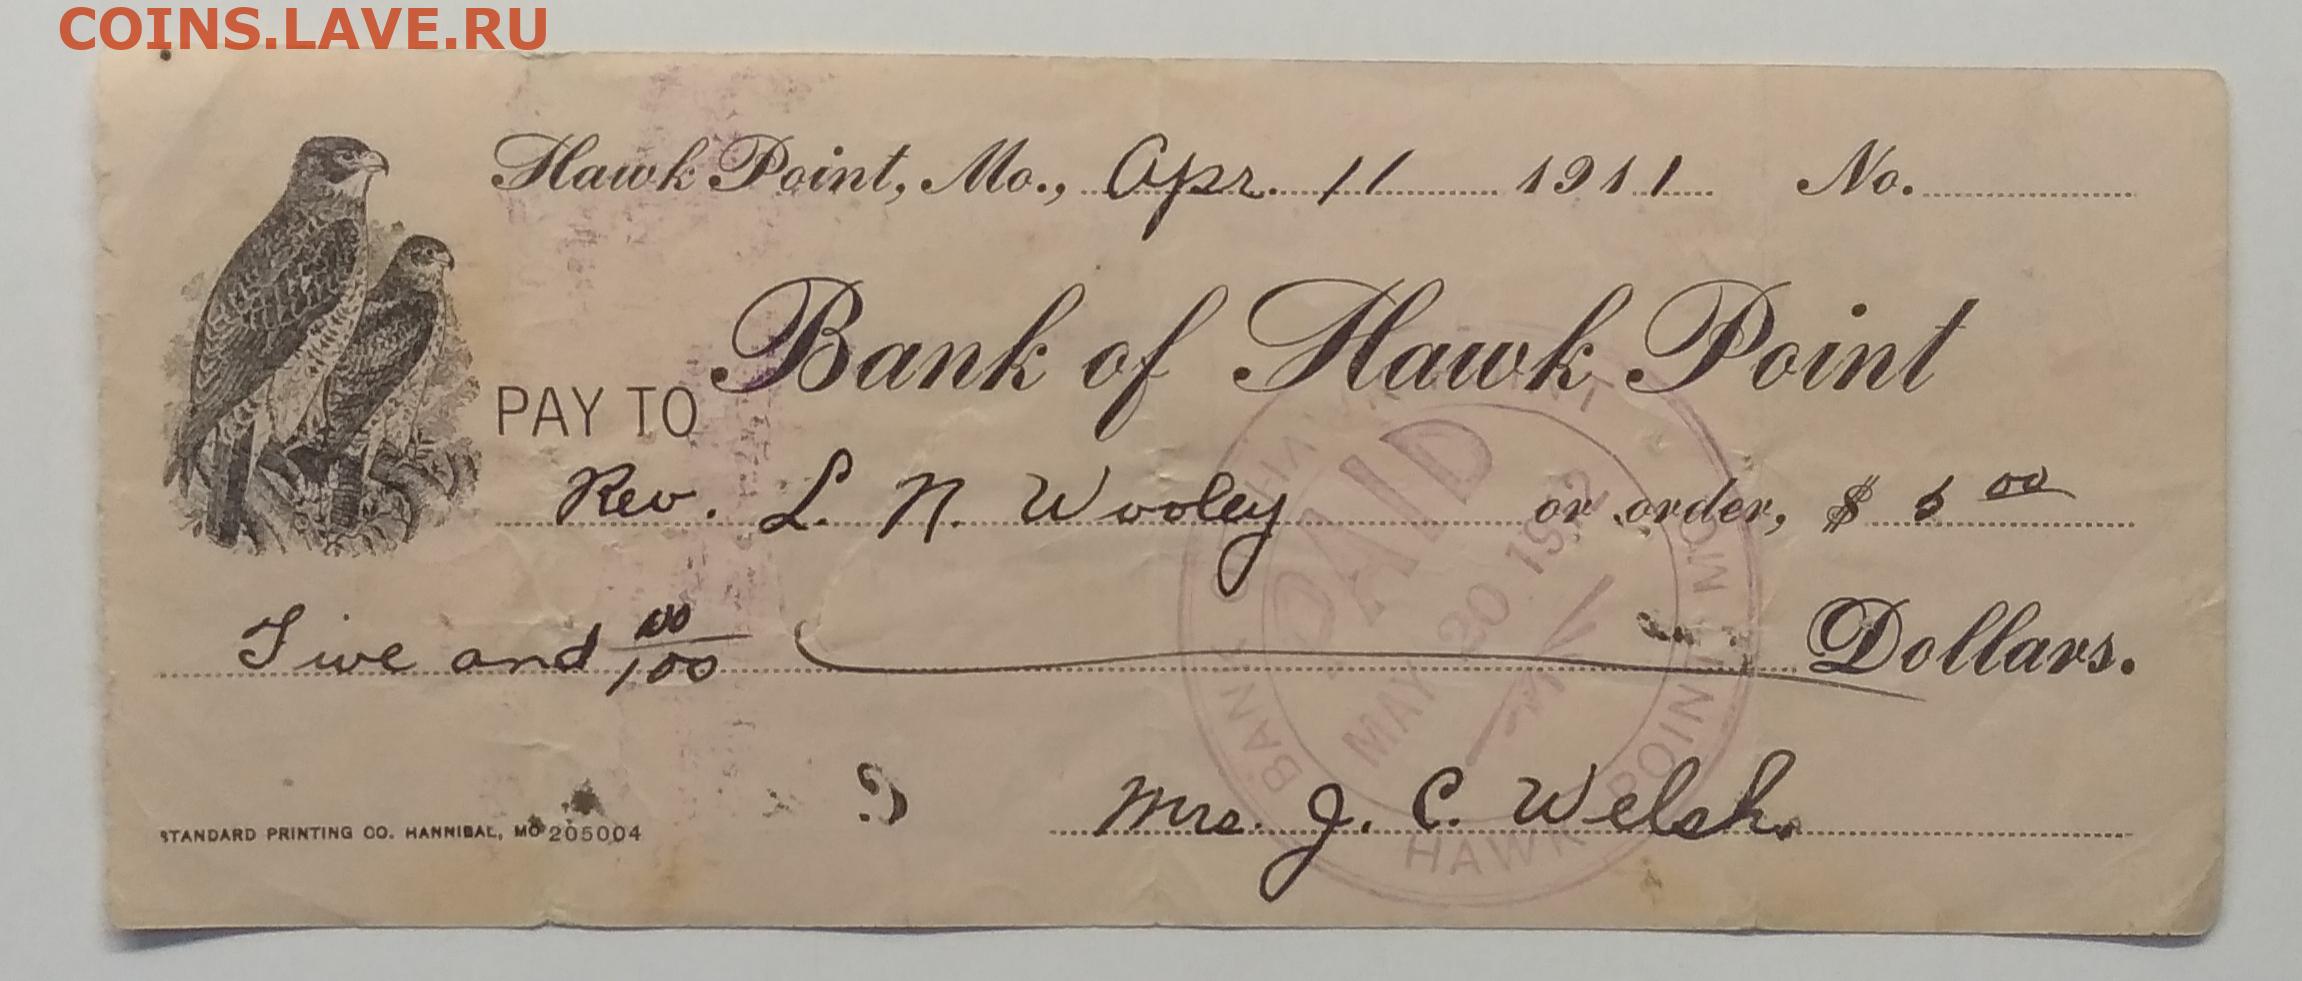 COINS.LAVE.RU
Hawk Point, Mo., Apr. 11 1911 No.
Bank of Hawk Point
PAY TO
Rev. L. N. Wooley or order, $ 5 00
Five and 00/100 Dollars.
PAID
MAY 20
BANK HAWK POINT MO
Mrs. J. C. Welsh.
STANDARD PRINTING CO. HANNIBAL, MO 205004